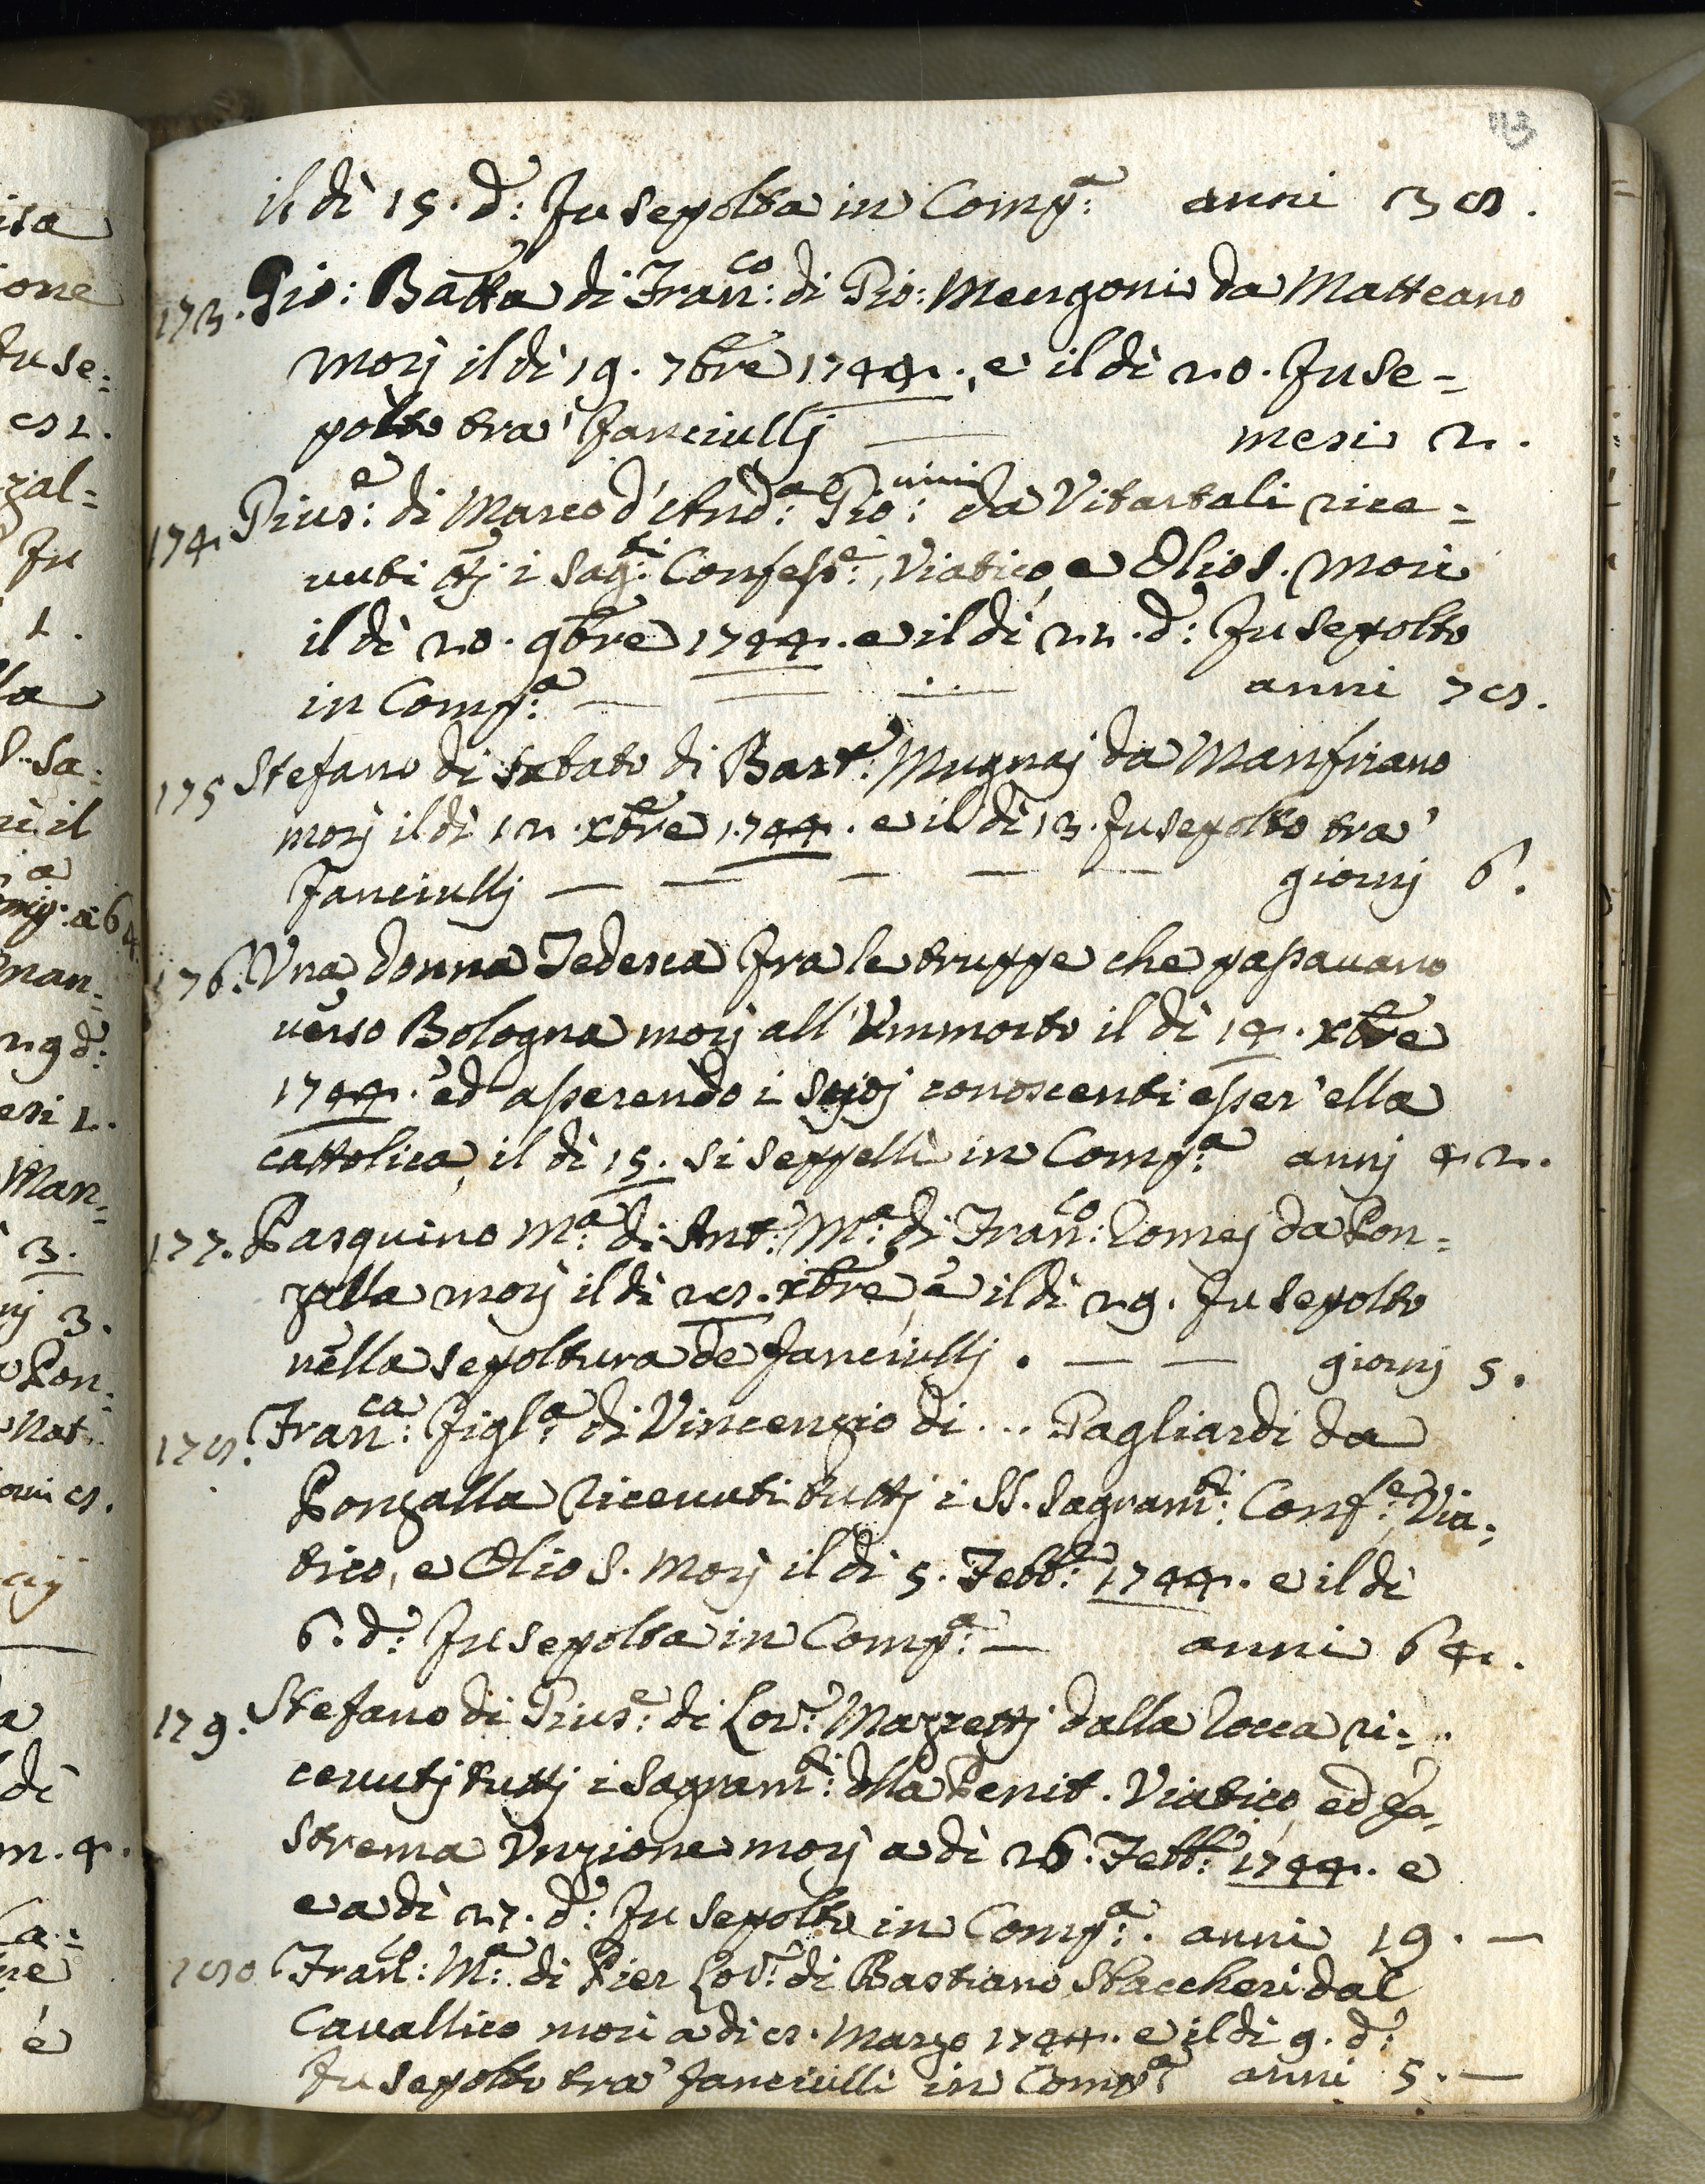 113
il dì 15. d.º fu sepolta in Comp.ª anni 38.
173. Gio: Batta di Fran.co di Gio: Mengoni da Matteano
morì il dì 19. 7bre 1744., e il dì 20. fu se=
polto tra' fanciulli mesi 2.
174. Gius.e di Marco d'And.a Gio:nini da Vitartali rice=
vuti tti i Sag.ti Confess.e, Viatico, e Olio S. morì
il dì 20. 9bre 1744. e il dì 22. d.º fu sepolto
in Comp.ª anni 78.
175 Stefano di Sabato di Bart.º Mugnaj da Manfriano
morj il dì 12. xbre 1744. e il dì 13. fu sepolto tra'
fanciullj giornj 6.
176. Una donna Tedesca fra le truppe che passavano
verso Bologna morj all' Ummorto il dì 14. xbre
1744. ed asserendo i suoj conoscenti esser' ella
cattolica, il dì 15. si seppellì in Comp.ª annj 42.
177. Pasquino M.ª di Ant.º M.ª di Fran.co Romej da Ron=
zalla morj il dì 28. xbre, e il dì 29. fu sepolto
nella sepoltura de fanciullj. giornj 5.
178. Fran.ca figl.ª di Vincenzio di ... Pagliardi da
Ronzalla ricevuti tuttj i SS. Sagram.ti Conf.e, Via=
tico, e Olio S. Morj il dì 5. Febb.º 1744. e il dì
6. d.º fu sepolta in Comp.ª anni 64.
179. Stefano di Gius.e di Lor.º Mazzettj dalla Rocca ri=
cevutj tuttj i Sagram.ti della Penit. Viatico, ed E=
strema Unzione morj a dì 26. Febb.º 1744. e
e a dì 27. d.º fu sepolto in Comp.ª anni 19.
180 Fran.co M.ª di Pier Lor.º di Bastiano Staccheri dal
Cavallico morì a dì 8. Marzo 1744. e il dì 9. d.º
fu sepolto tra' fanciulli in Comp.ª anni 5.